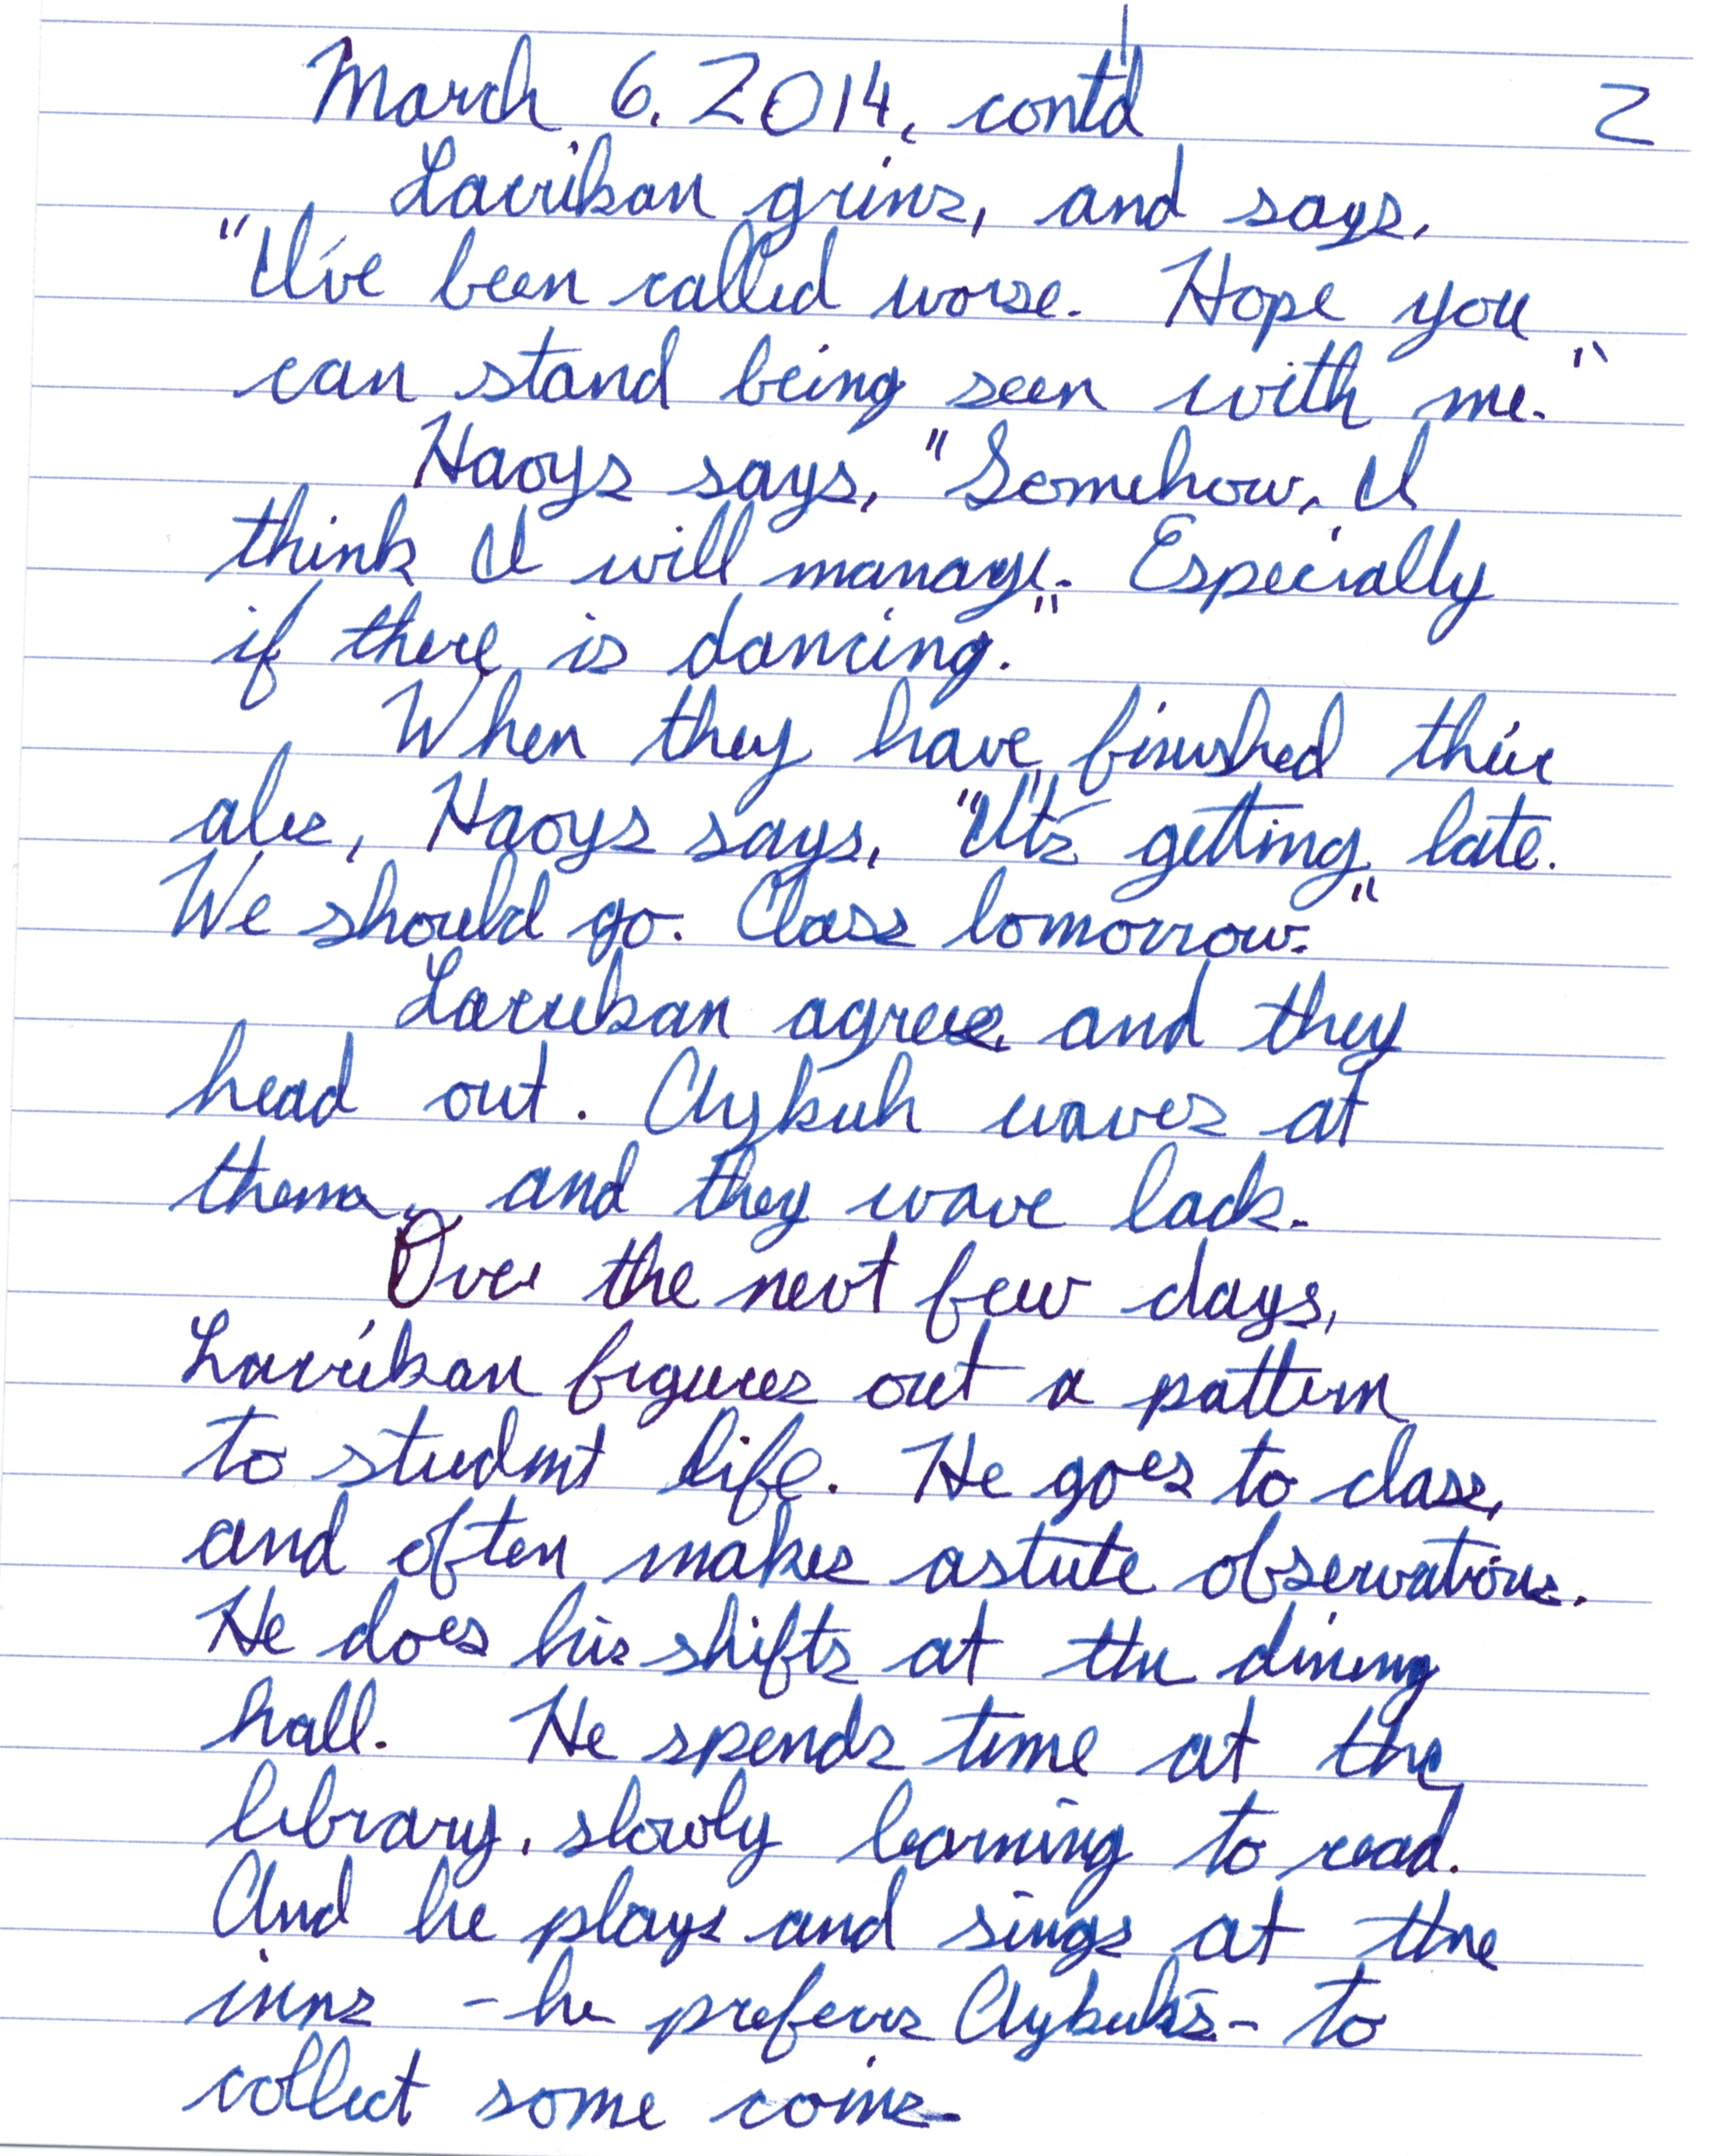 March 6, 2014, cont'd 2
Lavrikan grins, and says,
"I've been called worse. Hope you
can stand being seen with me."
Haoys says, "Somehow, I
think I will manage. Especially
if there is dancing."
When they have finished their
ales, Haoys says, "It's getting late.
We should go. Class tomorrow."
Lavrikan agrees, and they
head out. Aybkuh waves at
them, and they wave back.
Over the next few days,
Lavrikan figures out a pattern
to student life. He goes to class,
and often makes astute observations.
He does his shifts at the dining
hall. He spends time at the
library, slowly learning to read.
And he plays and sings at the
inns - he prefers - to
collect some coins.